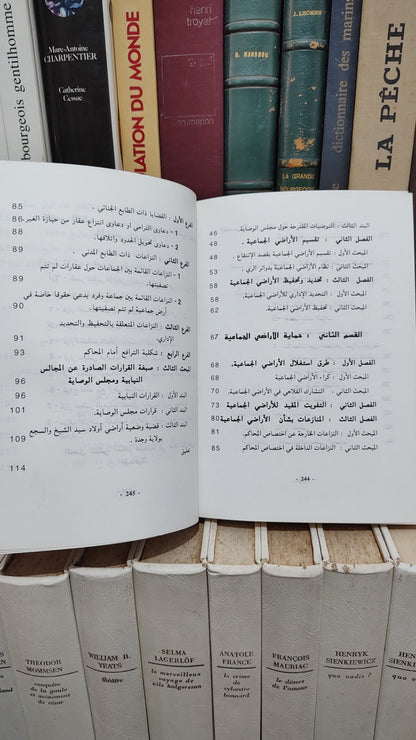 bourgeois gentilhomme
Marc-Antoine
CHARPENTIER
Catherine
Cessac
LATION DU MONDE
henri
troyat
flammarion
R. MANDROU
J. LHOMME
LA GRANDE
BOURGEOISIE
dictionnaire des marin
LA PÊCHE
البند الثالث : التوصيات المقترحة حول مجلس الوصاية. 46
الفصل الثاني : تقسيم الأراضي الجماعية . 50
المبحث الأول : تقسيم الأراضي الجماعية بقصد الإنتفاع . 50
المبحث الثاني : نظام الأراضي الجماعية بدوائر الري . 53
الفصل الثالث : تحديد وتحفيظ الأراضي الجماعية . 58
المبحث الأول : التحديد الإداري للأراضي الجماعية . 58
المبحث الثاني : تحفيظ الأراضي الجماعية . 62
القسم الثاني : حماية الأراضي الجماعية 67
الفصل الأول : طرق استغلال الأراضي الجماعية . 68
المبحث الأول : كراء الأراضي الجماعية .
المبحث الثاني : التشارك الفلاحي في الأراضي الجماعية . 70
الفصل الثاني : التفويت المقيد للأراضي الجماعية 72
الفصل الثالث : المنازعات بشأن الأراضي الجماعية 80
المبحث الأول : النزاعات الخارجة عن اختصاص المحاكم.
المبحث الثاني : النزاعات الداخلة في اختصاص المحاكم 85
- 244 -
الفرع الأول : القضايا ذات الطابع الجنائي . 85
1 - دعاوى الترامي او دعاوى انتزاع عقار من حيازة الغير. 85
2 - دعاوى تحويل الحدود واتلافها. 89
الفرع الثاني : النزاعات ذات الطابع المدني . 90
1 - النزاعات القائمة بين الجماعات حول عقارات لم تتم
تصفيتها. 90
2 - النزاعات القائمة بين جماعة وفرد يدعي حقوقا خاصة في
أرض جماعية لم تتم تصفيتها. 90
الفرع الثالث : النزاعات المتعلقة بالتحفيظ والتحديد
الإداري. 91
الفرع الرابع : شكلية الترافع أمام المحاكم 93
المبحث الثالث : صبغة القرارات الصادرة عن المجالس
النيابية ومجلس الوصاية 96
البند الأول : القرارات النيابية 96
البند الثاني : قرارات مجلس الوصاية. 101
البند الثالث : قضية وضعية أراضي أولاد سيد الشيخ والسجع
بولاية وجدة . 109
تعليق 114
- 245 -
THEODOR
MOMMSEN
conquête
de la gaule
et avènement
de césar
WILLIAM B.
YEATS
théâtre
SELMA
LAGERLÖF
le merveilleux
voyage de
nils holgersson
ANATOLE
FRANCE
le crime de
sylvestre
bonnard
FRANÇOIS
MAURIAC
le désert
de l'amour
HENRYK
SIENKIEWICZ
quo vadis ?
HENR
SIENKIE
quo va